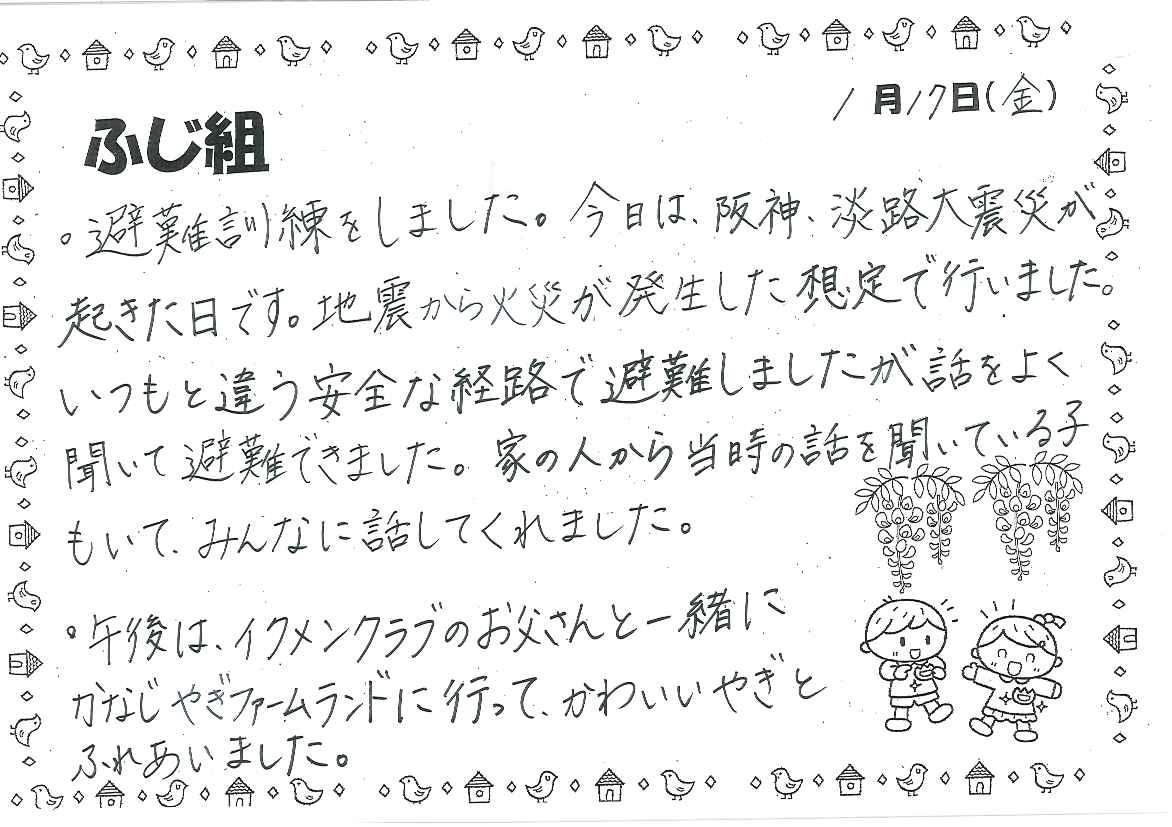 1月17日(金)
ふじ組
。避難訓練をしました。今日は、阪神、淡路大震災が
起きた日です。地震から火災が発生した想定で行いました。
いつもと違う安全な経路で避難しましたが話をよく
聞いて避難できました。家の人から当時の話を聞いている子
もいて、みんなに話してくれました。
。午後は、イクメンクラブのお父さんと一緒に
かなじやぎファームランドに行って、かわいいやぎと
ふれあいました。